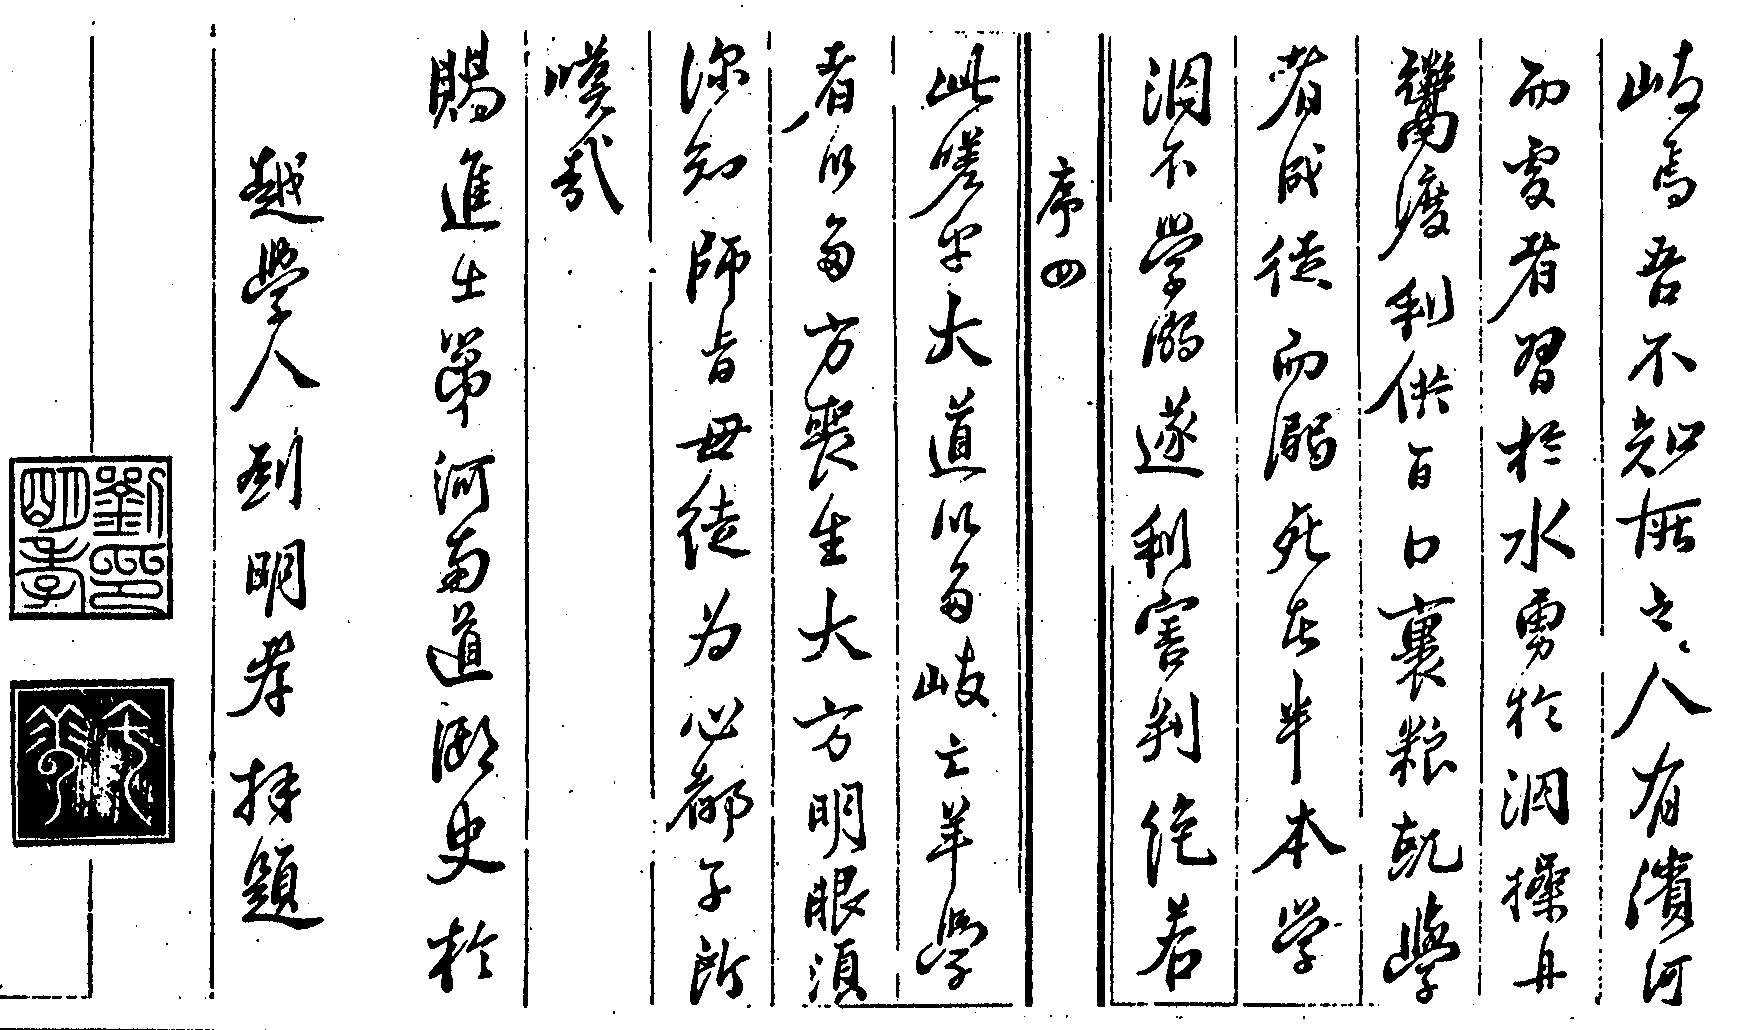 岐焉吾不知所之人有濱河
而處者習於水勇於泅操舟
鬻渡利供百口裹粮就學
者成徒而溺死者半本學
泅不學溺遂利害判絕若
序四
此嗟乎大道以多岐亡羊學
者以多方喪生大方明眼須
深知師旨毋徒為心都子所
嘆哉
賜進士第河南道御史於
越學人劉明孝拜題
劉明孝印